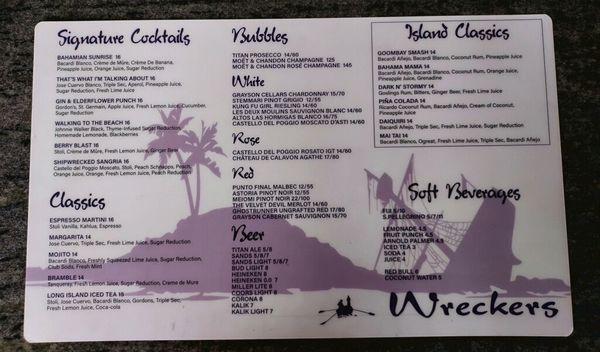 Signature Cocktails
BAHAMIAN SUNRISE 16
Bacardi Blanco, Crème de Mûre, Crème De Banana,
Pineapple Juice, Orange Juice, Sugar Reduction
THAT'S WHAT I'M TALKING ABOUT 16
Jose Cuervo Blanco, Triple Sec, Aperol, Pineapple Juice,
Sugar Reduction, Fresh Lime Juice
GIN & ELDERFLOWER PUNCH 16
Gordon's, St. Germain, Apple Juice, Fresh Lemon Juice, Cucumber,
Sugar Reduction
WALKING TO THE BEACH 16
Johnnie Walker Black, Thyme-Infused Sugar Reduction,
Homemade Lemonade, Blackberries
BERRY BLAST 16
Stoli, Crème de Mûre, Fresh Lemon Juice, Ginger Beer
SHIPWRECKED SANGRIA 16
Castello del Poggio Moscato, Stoli, Peach Schnapps, Peach,
Orange Juice, Pineapple Juice
Classics
ESPRESSO MARTINI 16
Stoli Vanilla, Kahlua, Espresso
MARGARITA 14
Jose Cuervo, Triple Sec, Fresh Lime Juice, Sugar Reduction
MOJITO 14
Bacardi Blanco, Freshly Squeezed Lime Juice, Sugar Reduction,
Club Soda, Fresh Mint
BRAMBLE 14
Tanqueray, Fresh Lemon Juice, Sugar Reduction, Creme de Mure
LONG ISLAND ICED TEA 15
Stoli, Jose Cuervo, Bacardi Blanco, Gordons, Triple Sec,
Fresh Lemon Juice, Coca-cola
Bubbles
TITAN PROSECCO 14/60
MOËT & CHANDON CHAMPAGNE 125
MOËT & CHANDON ROSÉ CHAMPAGNE 145
White
GRAYSON CELLARS CHARDONNAY 15/70
STEMMARI PINOT GRIGIO 12/55
KUNG FU GIRL RIESLING 14/60
LES DEUX MOULINS SAUVIGNON BLANC 14/60
ALTOS LAS HORMIGAS BLANCO 16/75
CASTELLO DEL POGGIO MOSCATO D'ASTI 14/60
Rose
CASTELLO DEL POGGIO ROSATO IGT 14/60
CHÂTEAU DE CALAVON AGATHE 17/80
Red
PUNTO FINAL MALBEC 12/55
ASTORIA PINOT NOIR 12/55
MEIOMI PINOT NOIR 22/100
THE VELVET DEVIL MERLOT 14/60
GHOSTRUNNER UNGRAFTED RED 17/80
GRAYSON CABERNET SAUVIGNON 15/70
Beer
TITAN ALE 5/8
SANDS 5/8/7
SANDS LIGHT 5/8/7
BUD LIGHT 8
HEINEKEN 8
HEINEKEN 0.0 7
MILLER LITE 8
COORS LIGHT 8
CORONA 8
KALIK 7
KALIK LIGHT 7
Island Classics
GOOMBAY SMASH 14
Bacardi Añejo, Bacardi Blanco, Coconut Rum, Pineapple Juice
BAHAMA MAMA 14
Bacardi Blanco, Coconut Rum, Orange Juice,
Pineapple Juice, Grenadine
DARK N' STORMY 14
Goslings Rum, Bitters, Ginger Beer, Fresh Lime Juice
PIÑA COLADA 14
Ricardo Coconut Rum, Bacardi Añejo, Cream of Coconut,
Pineapple Juice
DAIQUIRI 14
Bacardi Añejo, Triple Sec, Fresh Lime Juice, Sugar Reduction
MAI TAI 14
Bacardi Blanco, Ogreat, Fresh Lime Juice, Triple Sec, Bacardi Añejo
Soft Beverages
FIJI 5/10
S.PELLEGRINO 5/7/11
LEMONADE 4.5
FRUIT PUNCH 4.5
ARNOLD PALMER 4.5
ICED TEA 3
SODA 4
JUICE 4
RED BULL 6
COCONUT WATER 5
Wreckers